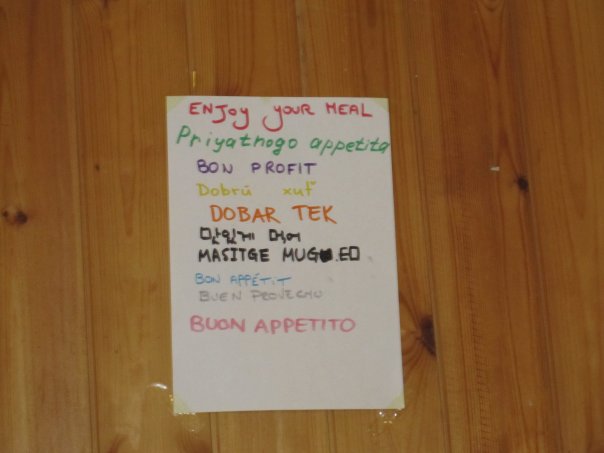 ENJOY YOUR MEAL
Priyatnogo appetita
BON PROFIT
Dobrú xuť
DOBAR TEK
맛있게 먹어
MASITGE MUG.EO
BON APPÉTIT
BUEN PROVECHO
BUON APPETITO